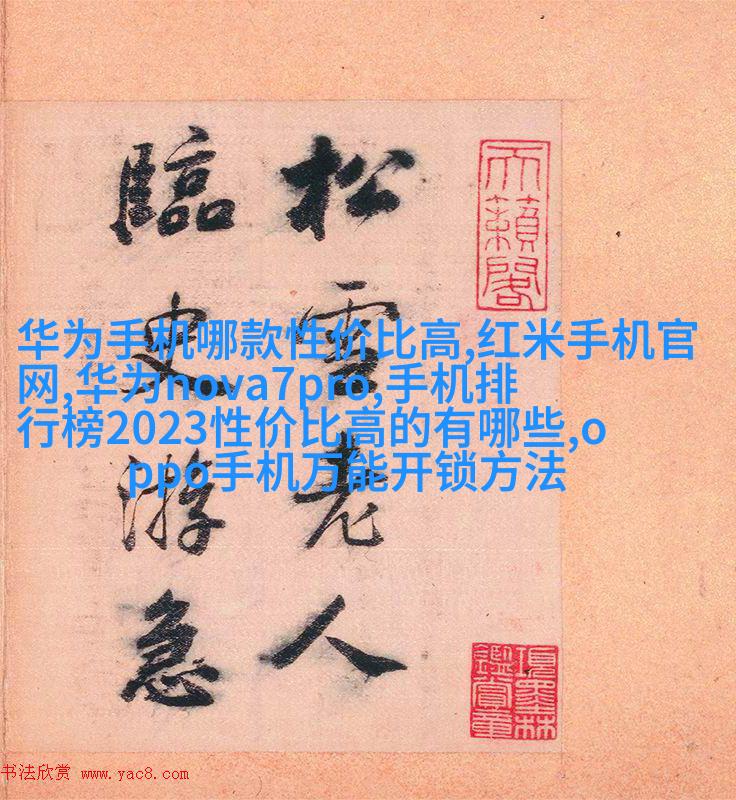 松雪老人
臨史游急
天籟閣
項墨林
鑑賞章
华为手机哪款性价比高,红米手机官
网,华为nova7pro,手机排
行榜2023性价比高的有哪些,o
ppo手机万能开锁方法
书法欣赏 www.yac8.com